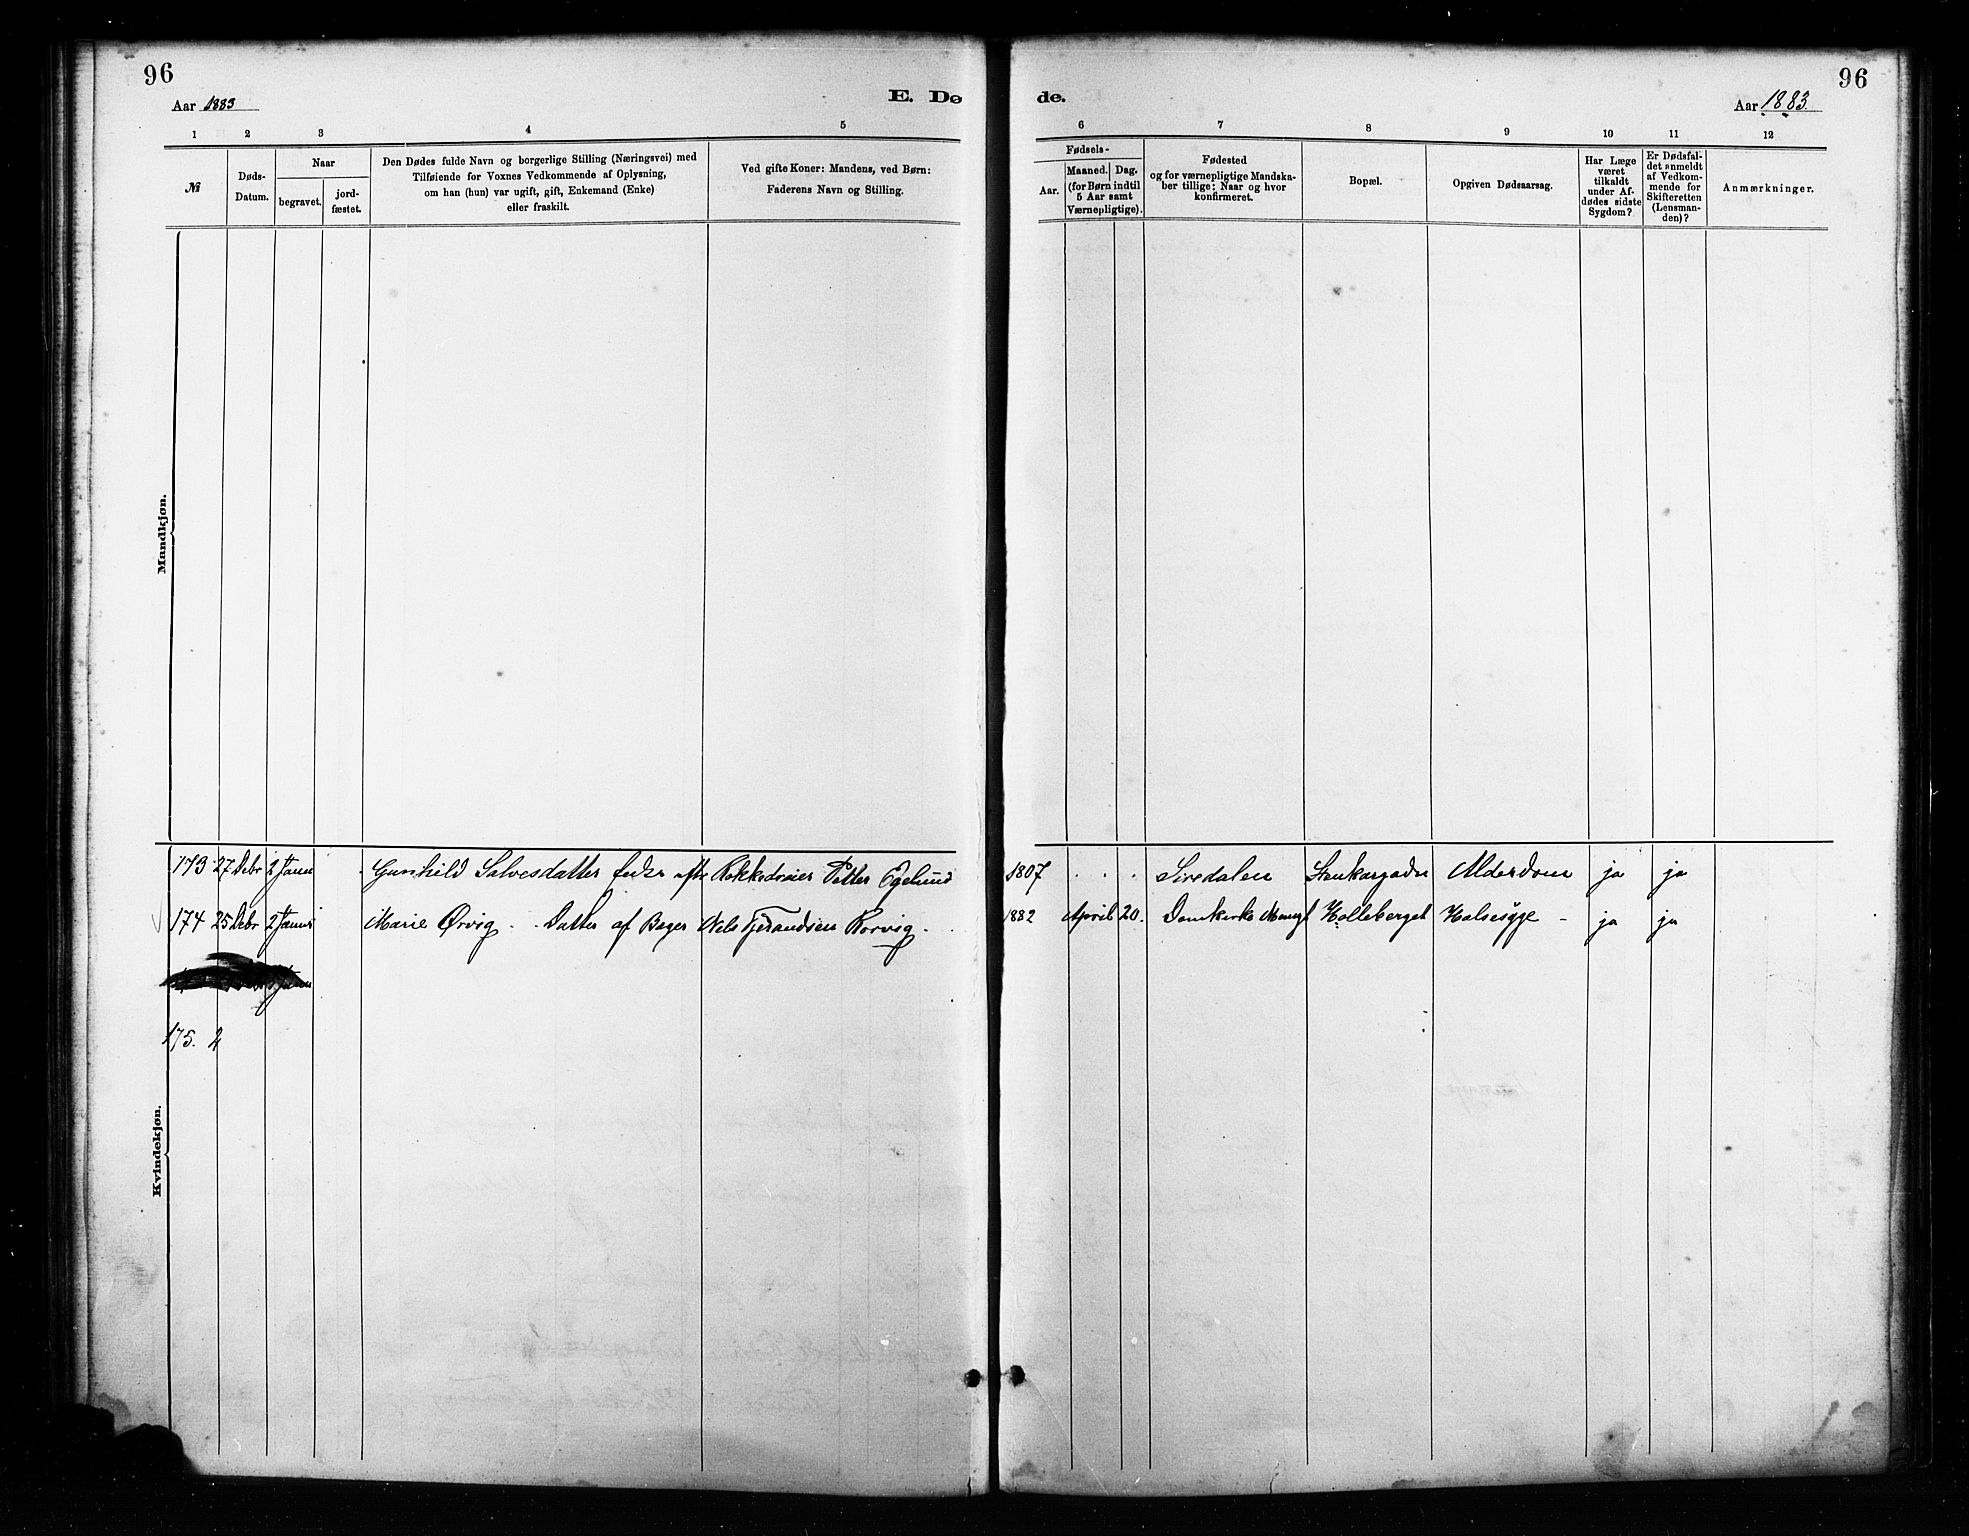 96
96
Aar 1883
E. Dø
de.
Aar 1883.
1 2 3 4 5 6 7 8 9 10 11 12
№
Døds-
Datum.
Naar
begravet.
jord-
fæstet.
Den Dødes fulde Navn og borgerlige Stilling (Næringsvei) med
Tilføiende for Voxnes Vedkommende af Oplysning,
om han (hun) var ugift, gift, Enkemand (Enke)
eller fraskilt.
Ved gifte Koner: Mandens, ved Børn:
Faderens Navn og Stilling.
Fødsels-
Aar.
Maaned. Dag.
(for Børn indtil
5 Aar samt
Værnepligtige).
Fødested
og for værnepligtige Mandska-
ber tillige: Naar og hvor
konfirmeret.
Bopæl.
Opgiven Dødsaarsag.
Har Læge
været
tilkaldt
under Af-
dødes sidste
Sygdom?
Er Dødsfal-
det anmeldt
af Vedkom-
mende for
Skifteretten
(Lensman-
den)?
Anmærkninger.
Mandkjøn.
173 27 Debr 2 Janu Gunhild Salvesdatter Petter Egelund 1807 . . . Siredalen Alderdom ja ja
174 25 Debr 2 Janu Marie Ørvig - Datter af Bager Nels 1882 April 20. Domkirke Holleberget Halsesyge - ja ja
175. 2
Kvindekjøn.